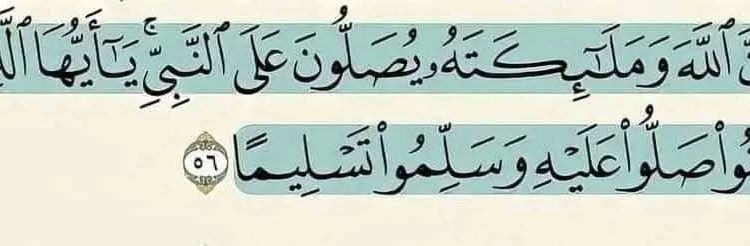 ٱللَّهَ وَمَلَـٰٓئِكَتَهُۥ يُصَلُّونَ عَلَى ٱلنَّبِىِّ ۚ يَـٰٓأَيُّهَا
صَلُّوا۟ عَلَيْهِ وَسَلِّمُوا۟ تَسْلِيمًا ٥٦